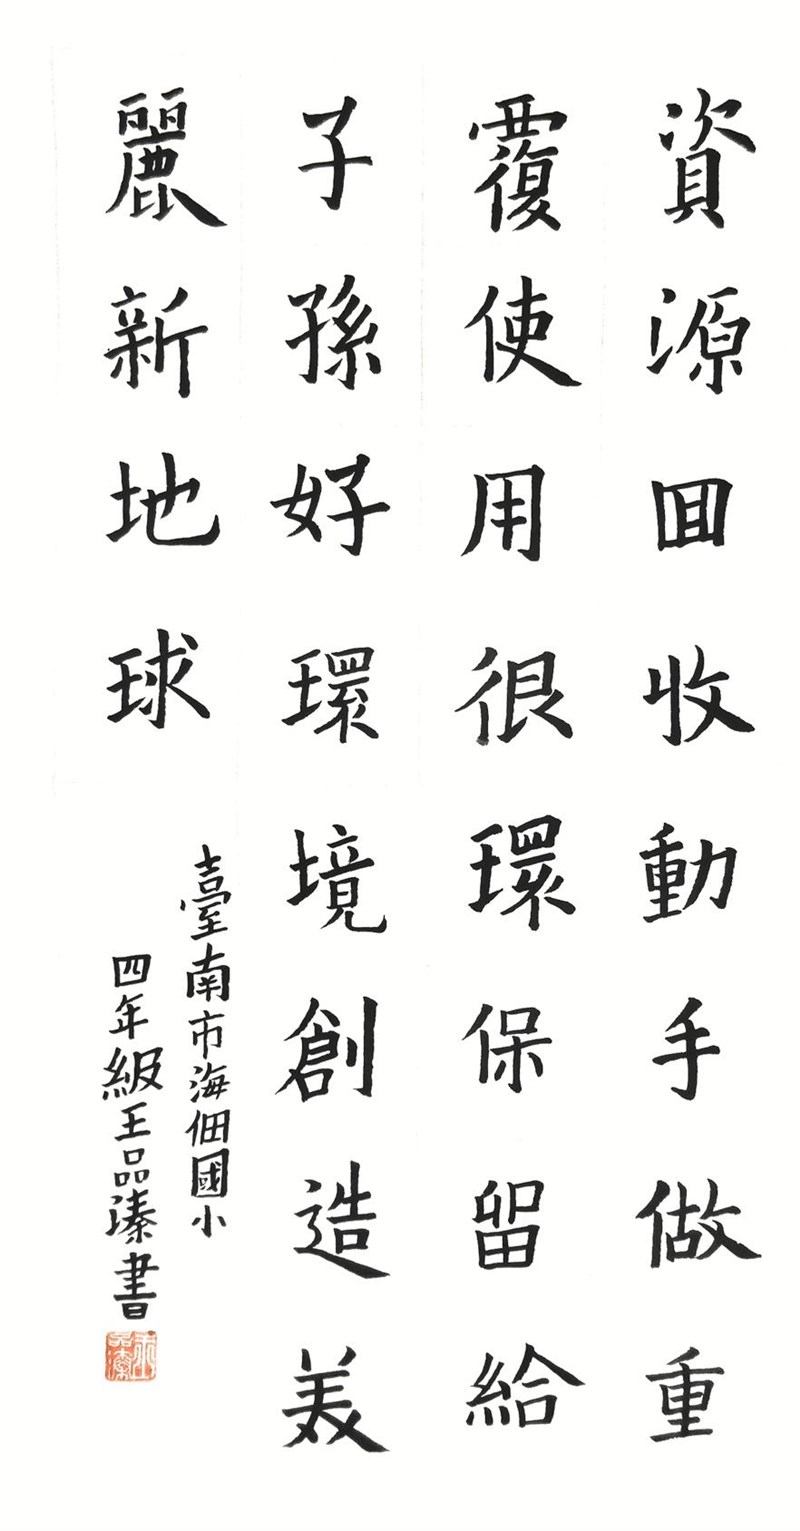 資源回收動手做重
覆使用很環保留給
子孫好環境創造美
麗新地球
臺南市海佃國小
四年級王品溱書
王品溱